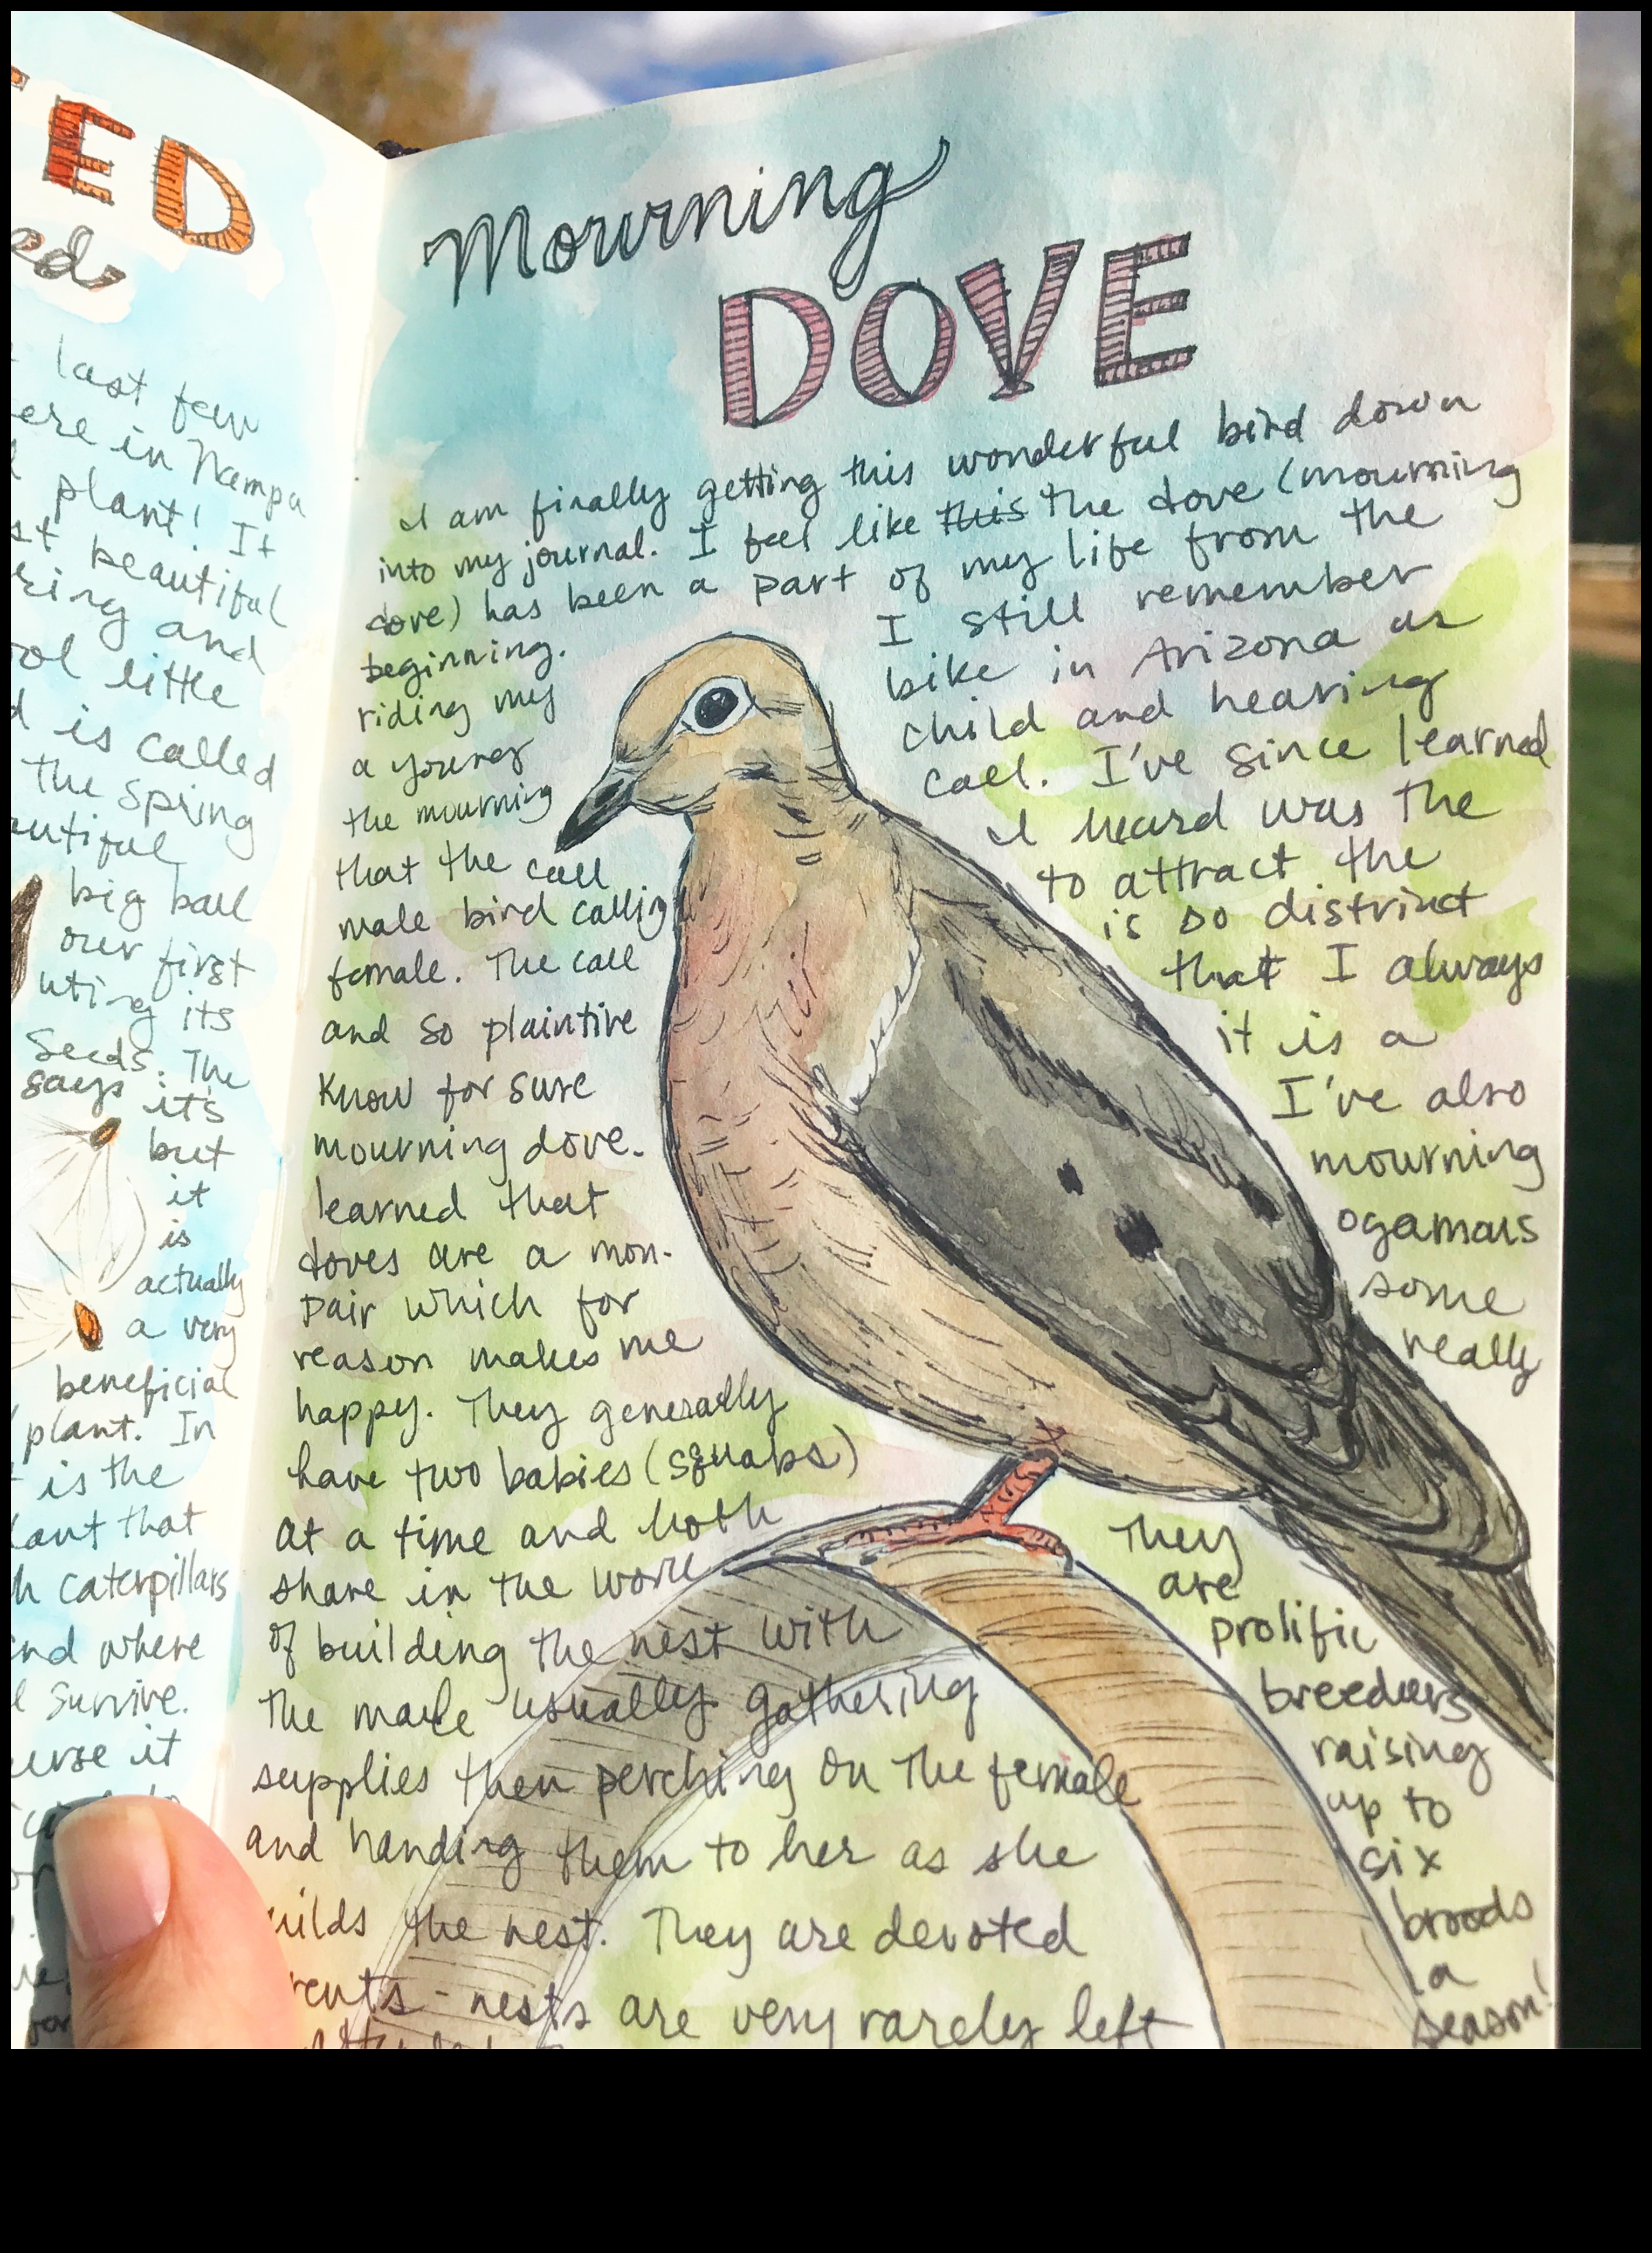 ED
last few
ere in Nampa
plant! It
st beautiful
ring and
ol little
d is called
the spring
utiful
big ball
our first
uting its
seeds. The
says it's
but
it
is
actually
a very
beneficial
plant. In
is the
lant that
h caterpillars
nd where
survive.
urse it
Mourning
DOVE
I am finally getting this wonderful bird down
into my journal. I feel like this the dove (mourning
dove) has been a part of my life from the
beginning. I still remember
riding my bike in Arizona as
a young child and hearing
the mourning call. I've since learned
that the call I heard was the
male bird calling to attract the
female. The call is so distrinct
and so plaintive that I always
know for sure it is a
mourning dove. I've also
learned that mourning
doves are a mon- ogamous
pair which for some
reason makes me really
happy. They generally
have two babies (squabs)
at a time and both
share in the work
of building the nest with
the male usually gathering
supplies then perching on the female
and handing them to her as she
uilds the nest. They are devoted
rents - nests are very rarely left
They
are
prolific
breeders
raising
up to
six
broods
a
season!